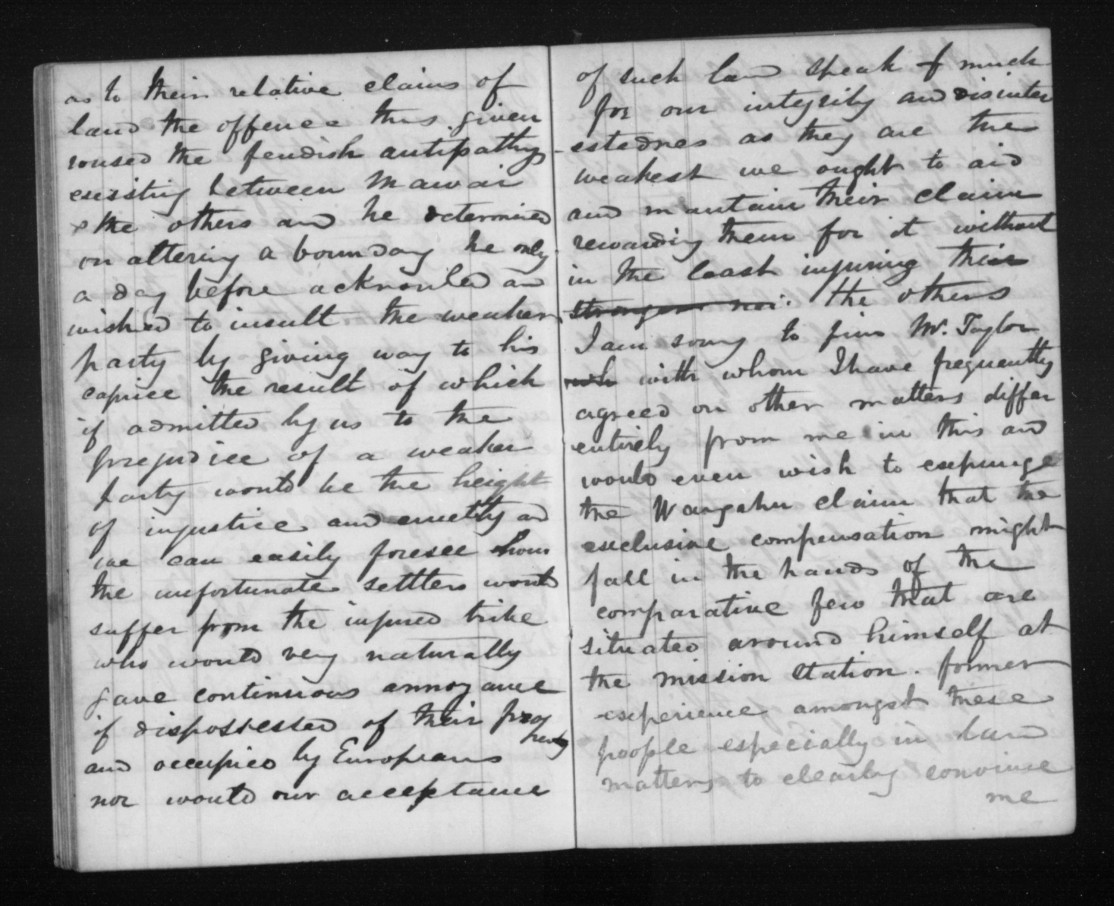 as to their relative claims of
land the offence thus given
roused the fendish antipathy
existing between Mawai
& the others and he determined
on altering a boundary he only
a day before acknowled and
wished to insult the weaker
party by giving way to his
caprice the result of which
if admitted by us to the
prejudice of a weaker
party would be the height
of injustice and cruelty and
we can easily foresee how
the unfortunate settlers would
suffer from the injured tribe
who would very naturally
gave continuous annoyance
if dispossested of their prop
herty
and occupied by Europeans
nor would our acceptance
of such land speak much
for our integrity and disinter
estednes as they are the
weakest we ought to aid
and maintain their claim
rewarding them for it without
in the least injuring their
stronger nei. the others
I am sorry to find Mr. Taylor
with whom I have frequently
agreed on other matters differ
entirely from me in this and
would even wish to expunge
the Wangahu claim that the
exclusive compensation might
fall in the hands of the
comparative few that are
situated around himself at
the mission station. former
experience amongst these
people especially in land
matters to clearly convince
me